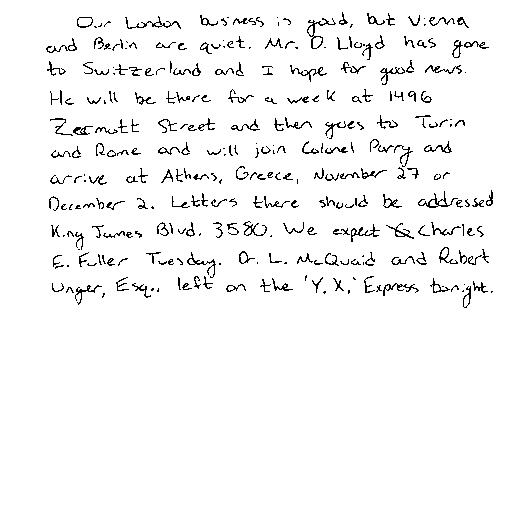 Our London business is good, but Vienna
and Berlin are quiet. Mr. D. Lloyd has gone
to Switzerland and I hope for good news.
He will be there for a week at 1496
Zermott Street and then goes to Turin
and Rome and will join Colonel Parry and
arrive at Athens, Greece, November 27 or
December 2. Letters there should be addressed
King James Blvd. 3580. We expect Charles
E. Fuller Tuesday. Dr. L. McQuaid and Robert
Unger, Esq., left on the 'Y. X.' Express tonight.